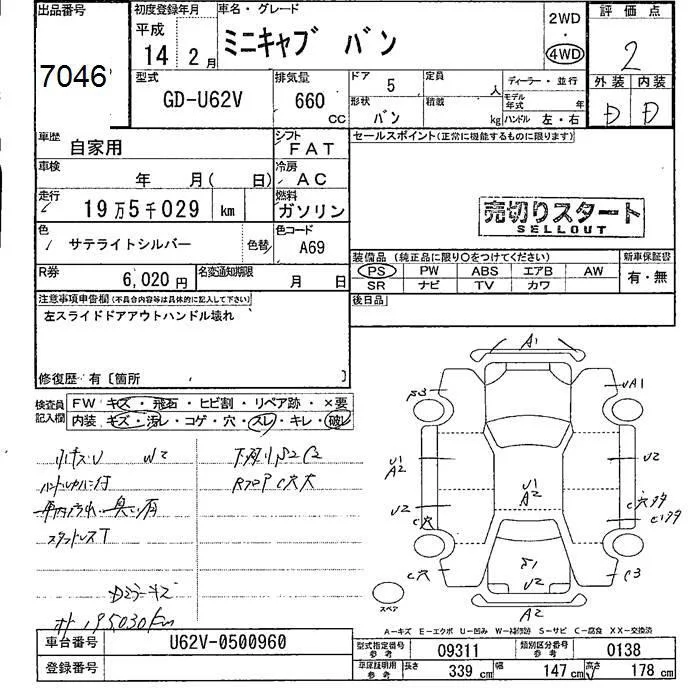 出品番号
7046
初度登録年月
平成
14 2月
車名・グレード
ミニキャブ バン
2WD
・
4WD
評価点
2
型式
GD-U62V
排気量
660
cc
ドア 5
定員 人
ディーラー・並行
モデル年式 年
形状 バン
積載 kg
ハンドル 左・右
外装 内装
D D
車歴 自家用
シフト FAT
セールスポイント(正常に機能するものに限ります)
車検 年 月( 日)
冷房 AC
走行 19万5千029 km
燃料 ガソリン
売切りスタート
SELLOUT
色 サテライトシルバー 色替
色コード A69
装備品 (純正品に限り○をつけてください)
新車保証書
PS PW ABS エアB AW
SR ナビ TV カワ
有・無
R券 6,020円
名変通知期限 月 日
後日品
注意事項申告欄(不具合内容等は具体的に記入して下さい)
左スライドドアアウトハンドル壊れ
修復歴・有〔箇所 〕
検査員記入欄
FW キズ・飛石・ヒビ割・リペア跡・×要
内装 キズ・汚レ・コゲ・穴・スレ・キレ・破レ
W2
スタットレスT
A1
UA1
U1
A2
U2
U1
A2
U2
C穴
C穴
U2
C3
A2
スペア
A-キズ E-エクボ U-凹み W-補修跡 S-サビ C-腐食 XX-交換済
車台番号 U62V-0500960
登録番号
型式指定番号 参考 09311
類別区分番号 参考 0138
車庫証明用 参考
長さ 339 cm
幅 147 cm
高さ 178 cm